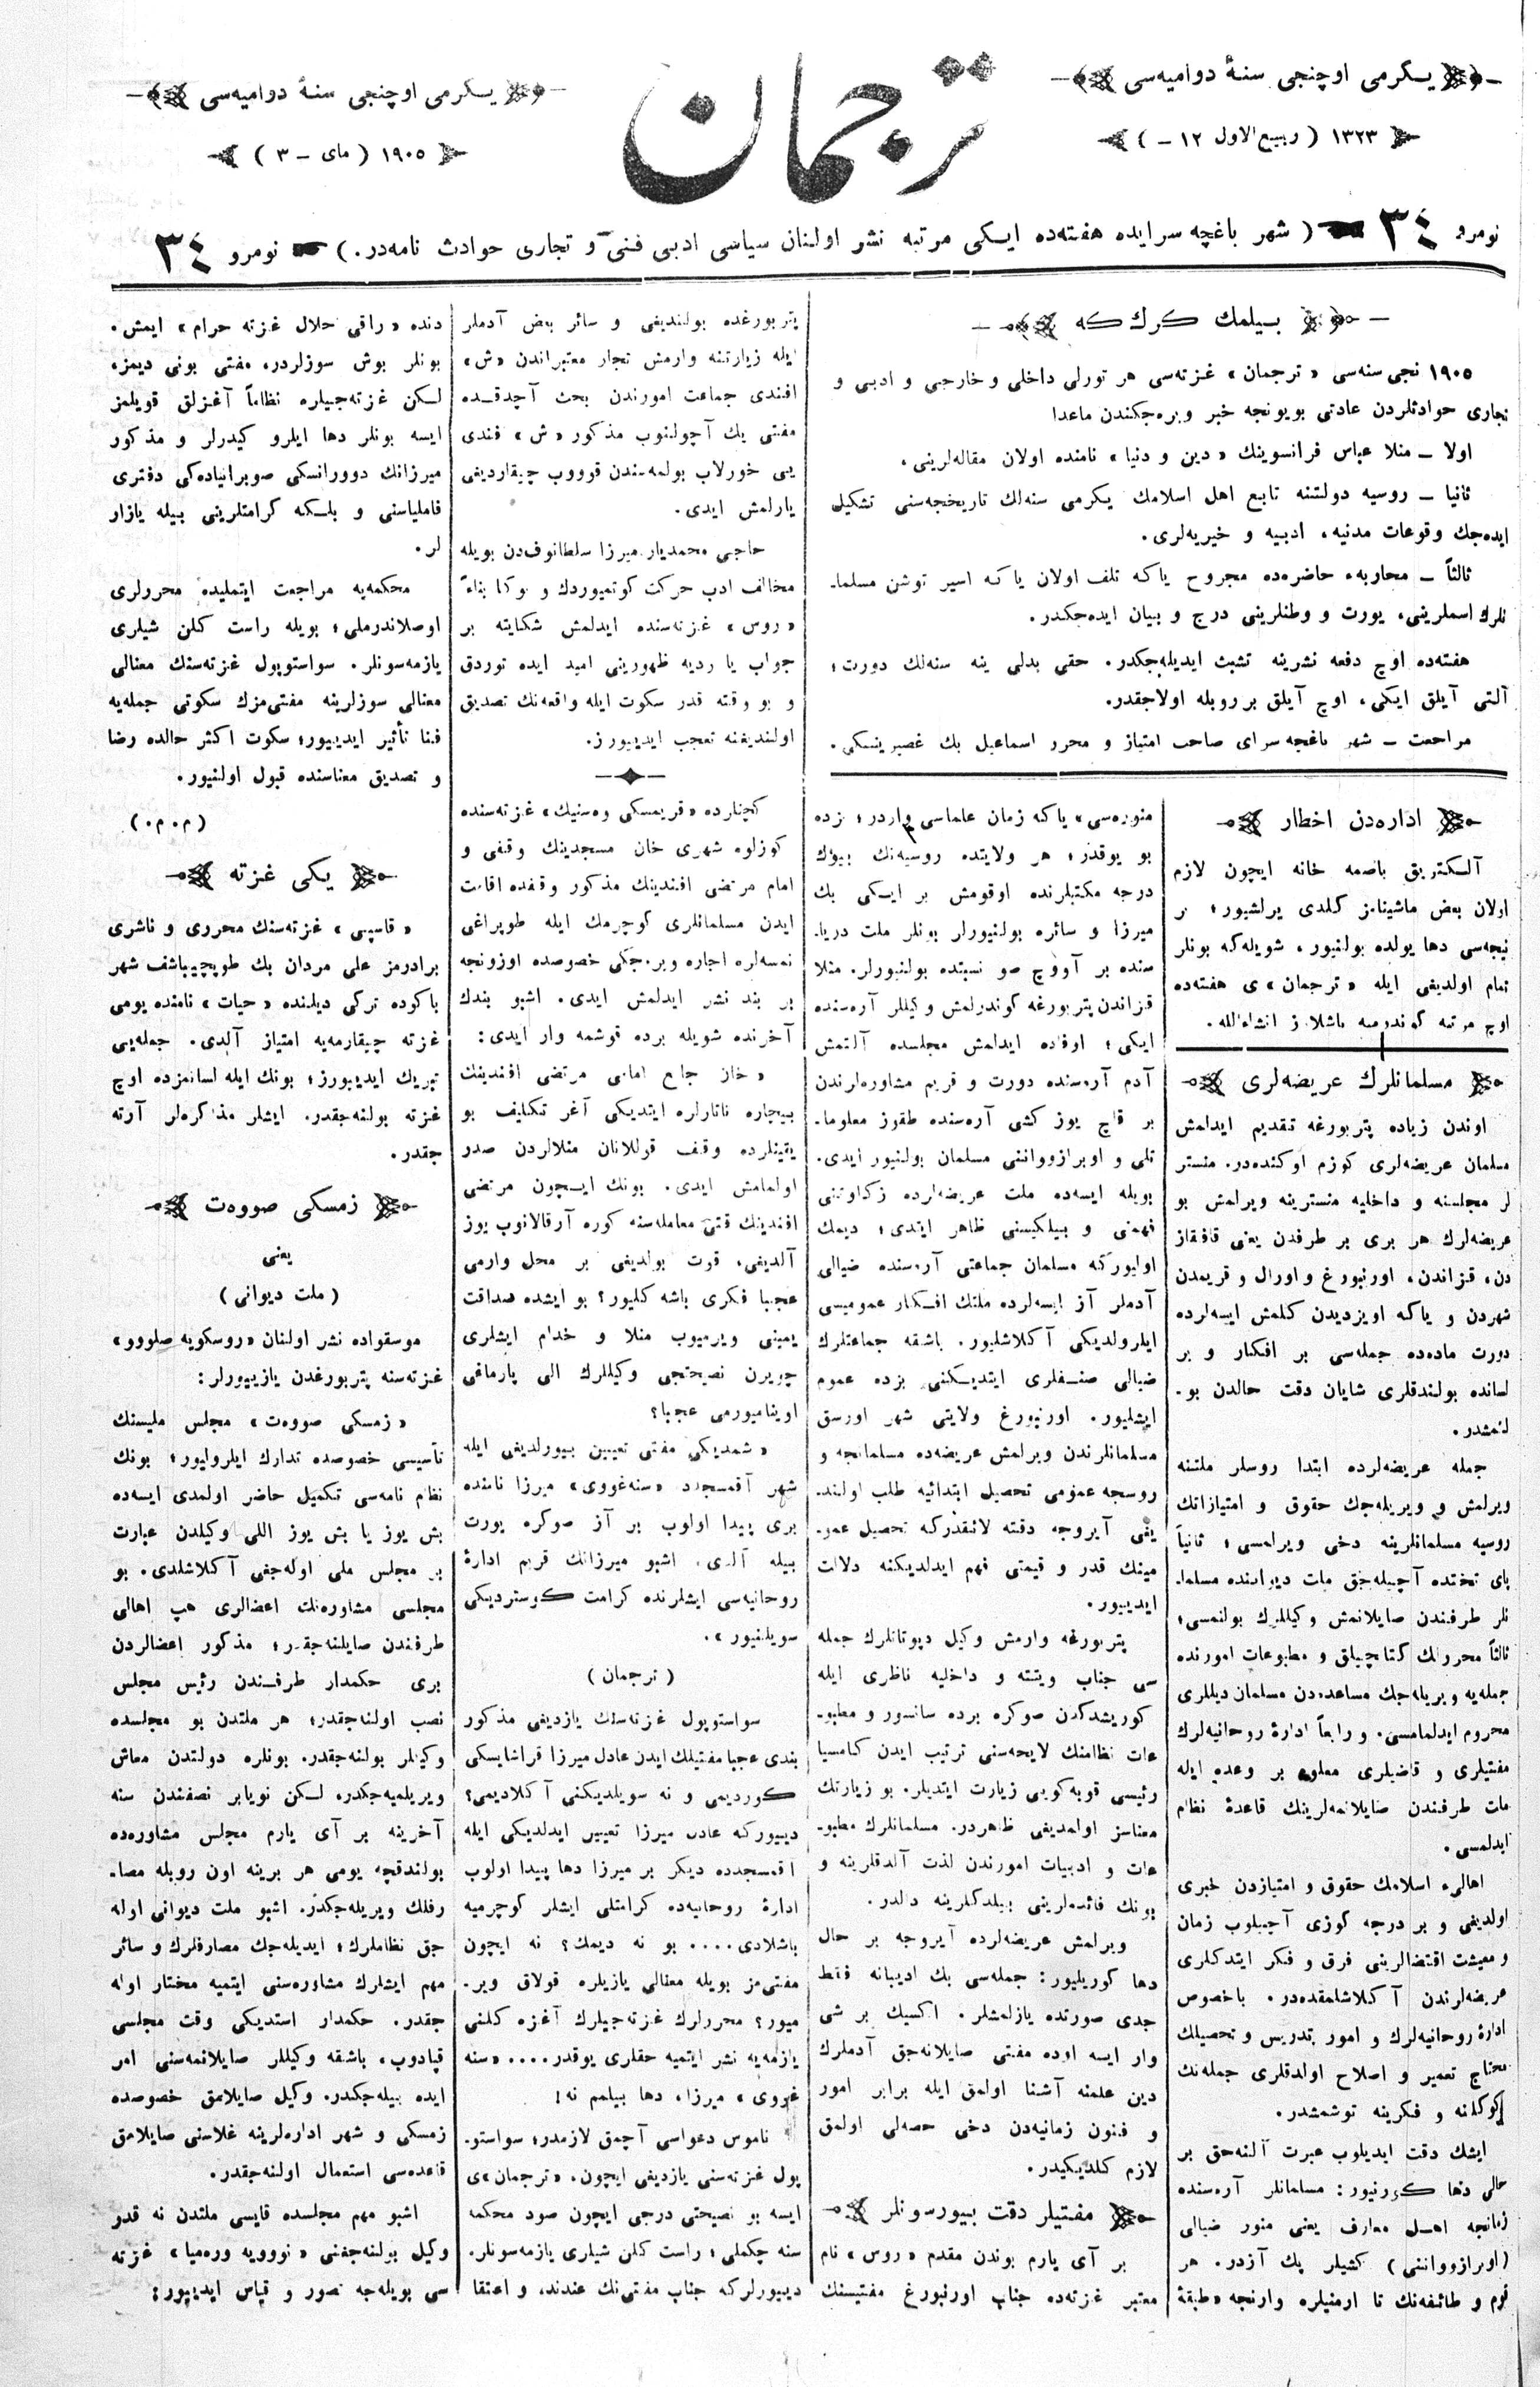 یكرمی اوچنجی سنۀ دوامیه‌سی
١٣٢٣ ( ربیع‌الاول ١٢ – )
ترجمان
یكرمی اوچنجی سنۀ دوامیه‌سی
١٩٠٥ ( مای – ٣ )
نومرو ٣٤ ( شهر باغچه سرایده هفته‌ده ایكی مرتبه نشر اولنان سیاسی ادبی فنی و تجاری حوادث نامه‌در. ) نومرو ٣٤
بیلمك كرك كه
١٩٠٥ نجی سنه‌سی «ترجمان» غزته‌سی هر تورلی داخلی و خارجی و ادبی و
تجاری حوادثلردن عادتی بویونجه خبر ویره‌جكندن ماعدا
اولا – منلا عباس فرانسوینك «دین و دنیا» نامنده اولان مقاله‌لرینی،
ثانیا – روسیه دولتنه تابع اهل اسلامك یكرمی سنه‌لك تاریخجه‌سنی تشكیل
ایده‌جك وقوعات مدنیه، ادبیه و خیریه‌لری.
ثالثاً – محاربهء حاضره‌ده مجروح یاكه تلف اولان یاكه اسیر توشن مسلما-
نلرك اسملرینی، یورت و وطنلرینی درج و بیان ایده‌جكدر.
هفته‌ده اوچ دفعه نشرینه تشبث ایدیله‌جكدر. حقی بدلی ینه سنه‌لك دورت؛
آلتی آیلق ایكی، اوچ آیلق بر روبله اولاجقدر.
مراجعت – شهر باغچه سرای صاحب امتیاز و محرر اسماعیل بك غصپرینسكی.
اداره‌دن اخطار
آلكتریق باصمه خانه ایچون لازم
اولان بعض ماشینامز كلدی یرلشیور؛ بر
نیجه‌سی دها یولده بولنیور. شویله‌كه بونلر
تمام اولدیغی ایله «ترجمان»ی هفته‌ده
اوچ مرتبه كوندرمیه باشلارز انشاءالله.
مسلمانلرك عریضه‌لری
اوندن زیاده پتربورغه تقدیم ایدلمش
مسلمان عریضه‌لری كوزم اوكنده‌در. منستر
لر مجلسنه و داخلیه منسترینه ویرلمش بو
عریضه‌لرك هر بری بر طرفدن یعنی قافقاز
دن، قزاندن، اورنبورغ و اورال و قریمدن
شهردن و یاكه اویزدیدن كلمش ایسه‌لرده
دورت ماده‌ده جمله‌سی بر افكار و بر
لسانده بولندقلری شایان دقت حالدن بو-
لنمشدر.
جمله عریضه‌لرده ابتدا روسلر ملتنه
ویرلمش و ویریله‌جك حقوق و امتیازاتك
روسیه مسلمانلرینه دخی ویرلمسی؛ ثانیاً
پای تختده آچیله‌جق ملت دیواننده مسلما-
نلر طرفندن صایلانمش وكیللرك بولنمسی؛
ثالثاً محررلك كتابچیلق و مطبوعات امورنده
جمله‌یه ویریله‌جك مساعده‌دن مسلمان دیللری
محروم ایدلمامسی. و رابعاً ادارۀ روحانیه‌لرك
مفتیلری و قاضیلری معلوم بر وعده ایله
ملت طرفندن صایلانمه‌لرینك قاعدۀ نظام
ایدلمسی.
اهالیء اسلامك حقوق و امتیازدن خبری
اولدیغی و بر درجه كوزی آچیلوب زمان
و معیشت اقتضالرینی فرق و فكر ایتدكلری
عریضه‌لرندن آكلاشلمقده‌در. باخصوص
ادارۀ روحانیه‌لرك و امور تدریس و تحصیلك
محتاج تعمیر و اصلاح اولدقلری جمله‌نك
كوكلنه و فكرینه توشمشدر.
ایشك دقت ایدیلوب عبرت آلنه‌جق بر
حالی دها كورنیور: مسلمانلر آره‌سنده
زمانجه اهل معارف یعنی منور ضیالی
(اوبرازووانی) كشیلر پك آزدر. هر
قوم و طائفه‌نك تا ارمنیلره وارنجه «طبقۀ
منوره‌سی» یاكه زمان علماسی واردر؛ بزده
بو یوقدر؛ هر ولایتده روسیه‌نك بیوك
درجه مكتبلرنده اوقومش بر ایكی بك
میرزا و سائره بولنیورلر بونلر ملت دریا-
سنده بر آووچ صو نسبتده بولنیورلر. مثلا
قزاندن پتربورغه كوندرلمش وكیللر آره‌سنده
ایكی؛ اوفاده ایدلمش مجلسده آلتمش
آدم آره‌سنده دورت و قریم مشاوره‌لرندن
بر قاچ یوز كشی آره‌سنده طقوز معلوما-
تلی و اوبرازووانی مسلمان بولنیور ایدی.
بویله ایسه‌ده ملت عریضه‌لرده زكاوتنی
فهمنی و بیلكیسنی ظاهر ایتدی؛ دیمك
اولیوركه مسلمان جماعتی آره‌سنده ضیالی
آدملر آز ایسه‌لرده ملتك افكار عمومیسی
ایلرولدیكی آكلاشلیور. باشقه جماعتلرك
ضیالی صنفلری ایتدیكنی بزده عموم
ایشلیور. اورنبورغ ولایتی شهر اورسق
مسلمانلرندن ویرلمش عریضه‌ده مسلمانجه و
روسجه عمومی تحصیل ابتدائیه طلب اولند-
یغی آیروجه دقته لائقدركه تحصیل عمو-
مینك قدر و قیمتی فهم ایدلدیكنه دلالت
ایدیور.
پتربورغه وارمش وكیل دپوتاتلرك جمله
سی جناب ویتته و داخلیه ناظری ایله
كوریشدكدن صوكره برده سانسور و مطبو-
عات نظامنك لایحه‌سنی ترتیب ایدن كامسیا
رئیسی قوبه‌كویی زیارت ایتدیلر. بو زیارتك
معناسز اولمدیغی ظاهردر. مسلمانلرك مطبو-
عات و ادبیات امورندن لذت آلدقلرینه و
بونك فائده‌لرینی بیلدكلرینه دالدر.
ویرلمش عریضه‌لرده آیروجه بر حال
دها كوریلیور: جمله‌سی بك ادیبانه فقط
جدی صورتده یازلمشلر. اكسیك بر شی
وار ایسه اوده مفتی صایلانه‌جق آدملرك
دین علمنه آشنا اولمق ایله برابر امور
و فنون زمانیه‌دن دخی حصه‌لی اولمق
لازم كلدیكیدر.
مفتیلر دقت بیورسونلر
بر آی یارم بوندن مقدم «روس» نام
معتبر غزته‌ده جناب اورنبورغ مفتیسنك
پتربورغده بولندیغی و سائر بعض آدملر
ایله زیارتنه وارمش تجار معتبراندن «ش»
افندی جماعت امورندن بحث آچدقده
مفتی پك آچولنوب مذكور «ش» فندی
یی خورلاب بولمه‌سندن قوووب چیقاردیغی
یازلمش ایدی.
حاجی محمدیار میرزا سلطانوف‌دن بویله
مخالف ادب حركت كوتمیوردك و بوكا بناءً
«روس» غزته‌سنده ایدلمش شكایته بر
جواب یا ردیه ظهورینی امید ایده توردق
و بو وقته قدر سكوت ایله واقعه‌نك تصدیق
اولندیغنه تعجب ایدییورز.
كچنلرده «قریمسكی وه‌ستنیك» غزته‌سنده
كوزلوه شهری خان مسجدینك وقفی و
امام مرتضی افندینك مذكور وقفده اقامت
ایدن مسلمانلری كوچرمك ایله طوپراغی
نمسه‌لره اجاره ویره‌جكی خصوصده اوزونجه
بر بند نشر ایدلمش ایدی. اشبو بندك
آخرنده شویله برده قوشمه وار ایدی:
«خان جامع امامی مرتضی افندینك
بیچاره تاتارلره ایتدیكی آغر تكلیف بو
یقینلرده وقف قوللانان منلالردن صدر
اولمامش ایدی. بونك ایچون مرتضی
افندینك قتی معامله‌سنه كوره آرقالانوب یوز
آلدیغی، قوت بولدیغی بر محل وارمی
عجبا فكری باشه كلیور؟ بو ایشده صداقت
یمینی ویرمیوب منلا و خدام ایشلری
چویرن نصیحتجی وكیللرك الی پارماغی
اوینامیورمی عجبا؟
«شمدیكی مفتی تعیین بیورلدیغی ایله
شهر آقمسجدده «سنه‌غووی» میرزا نامنده
بری پیدا اولوب بر آز صوكره یورت
بیله آلدی. اشبو میرزانك قریم ادارۀ
روحانیه‌سی ایشلرنده كرامت كوستردیكی
سویلنیور».
( ترجمان )
سواستوپول غزته‌سنك یازدیغی مذكور
بندی عجبا مفتیلك ایدن عادل میرزا قراشایسكی
كوردیمی و نه سویلدیكنی آكلادیمی؟
دیییوركه عادل میرزا تعیین ایدلدیكی ایله
آقمسجدده دیكر بر میرزا دها پیدا اولوب
ادارۀ روحانیه‌ده كرامتلی ایشلر كوچرمیه
باشلادی.... بو نه دیمك؟ نه ایچون
مفتی‌مز بویله معنالی یازیلره قولاق ویر-
میور؟ محررلرك غزته‌جیلرك آغزه كلنی
یازمه‌یه نشر ایتمیه حقلری یوقدر.... «سنه
غووی» میرزا، دها بیلمم نه!
ناموس دعواسی آچمق لازمدر؛ سواستو-
پول غزته‌سنی یازدیغی ایچون، «ترجمان»ی
ایسه بو نصیحتی درجی ایچون صود محكمه
سنه چكملی؛ راست كلن شیلری یازمه‌سونلر.
دیییورلركه جناب مفتی‌نك عندند، و اعتقا
دنده «راقی حلال غزته حرام» ایمش.
بونلر بوش سوزلردر، مفتی بونی دیمز،
لكن غزته‌جیلره نظاماً آغزلق قویلمز
ایسه بونلر دها ایلرو كیدرلر و مذكور
میرزانك دوورانسكی صوبرانیاده‌كی دفتری
فاملیاسنی و بلكه كرامتلرینی بیله یازار
لر.
محكمه‌یه مراجعت ایتملیده محررلری
اوصلاندرملی؛ بویله راست كلن شیلری
یازمه‌سونلر. سواستوپول غزته‌سنك معنالی
معنالی سوزلرینه مفتی‌مزك سكوتی جمله‌یه
فنا تأثیر ایدییور؛ سكوت اكثر حالده رضا
و تصدیق معناسنده قبول اولنیور.
( م. م. )
یكی غزته
«قاسپی» غزته‌سنك محرری و ناشری
برادرمز علی مردان بك طوپچیباشف شهر
باكوده تركی دیلنده «حیات» نامنده یومی
غزته چیقارمه‌یه امتیاز آلدی. جمله‌یی
تبریك ایدییورز؛ بونك ایله لسانمزده اوچ
غزته بولنه‌جقدر. ایشلر مذاكره‌لر آرته
جقدر.
زمسكی صووه‌ت
یعنی
( ملت دیوانی )
موسقواده نشر اولنان «روسكویه صلووو»
غزته‌سنه پتربورغدن یازییورلر:
«زمسكی صووه‌ت» مجلس ملیسنك
تأسیسی خصوصده تدارك ایلرولیور؛ بونك
نظام نامه‌سی تكمیل حاضر اولمدی ایسه‌ده
بش یوز یا بش یوز اللی وكیلدن عبارت
بر مجلس ملی اوله‌جغی آكلاشلدی. بو
مجلسی مشاوره‌نك اعضالری هپ اهالی
طرفندن صایلنه‌جقدر؛ مذكور اعضالردن
بری حكمدار طرفندن رئیس مجلس
نصب اولنه‌جقدر؛ هر ملتدن بو مجلسده
وكیللر بولنه‌جقدر. بونلره دولتدن معاش
ویریلمیه‌جكدر، لكن نویابر نصفندن سنه
آخرینه بر آی یارم مجلس مشاوره‌ده
بولندقچه یومی هر برینه اون روبله مصا-
رفلك ویریله‌جكدر. اشبو ملت دیوانی اوله
جق نظاملرك؛ ایدیله‌جك مصارفلرك و سائر
مهم ایشلرك مشاوره‌سنی ایتمیه مختار اوله
جقدر. حكمدار استدیكی وقت مجلسی
قپادوب، باشقه وكیللر صایلانمه‌سنی امر
ایده بیله‌جكدر. وكیل صایلامق خصوصده
زمسكی و شهر اداره‌لرینه غلاسنی صایلامق
قاعده‌سی استعمال اولنه‌جقدر.
اشبو مهم مجلسده قایسی ملتدن نه قدر
وكیل بولنه‌جغنی «نووویه وره‌میا» غزته
سی بویله‌جه تصور و قیاس ایدییور: